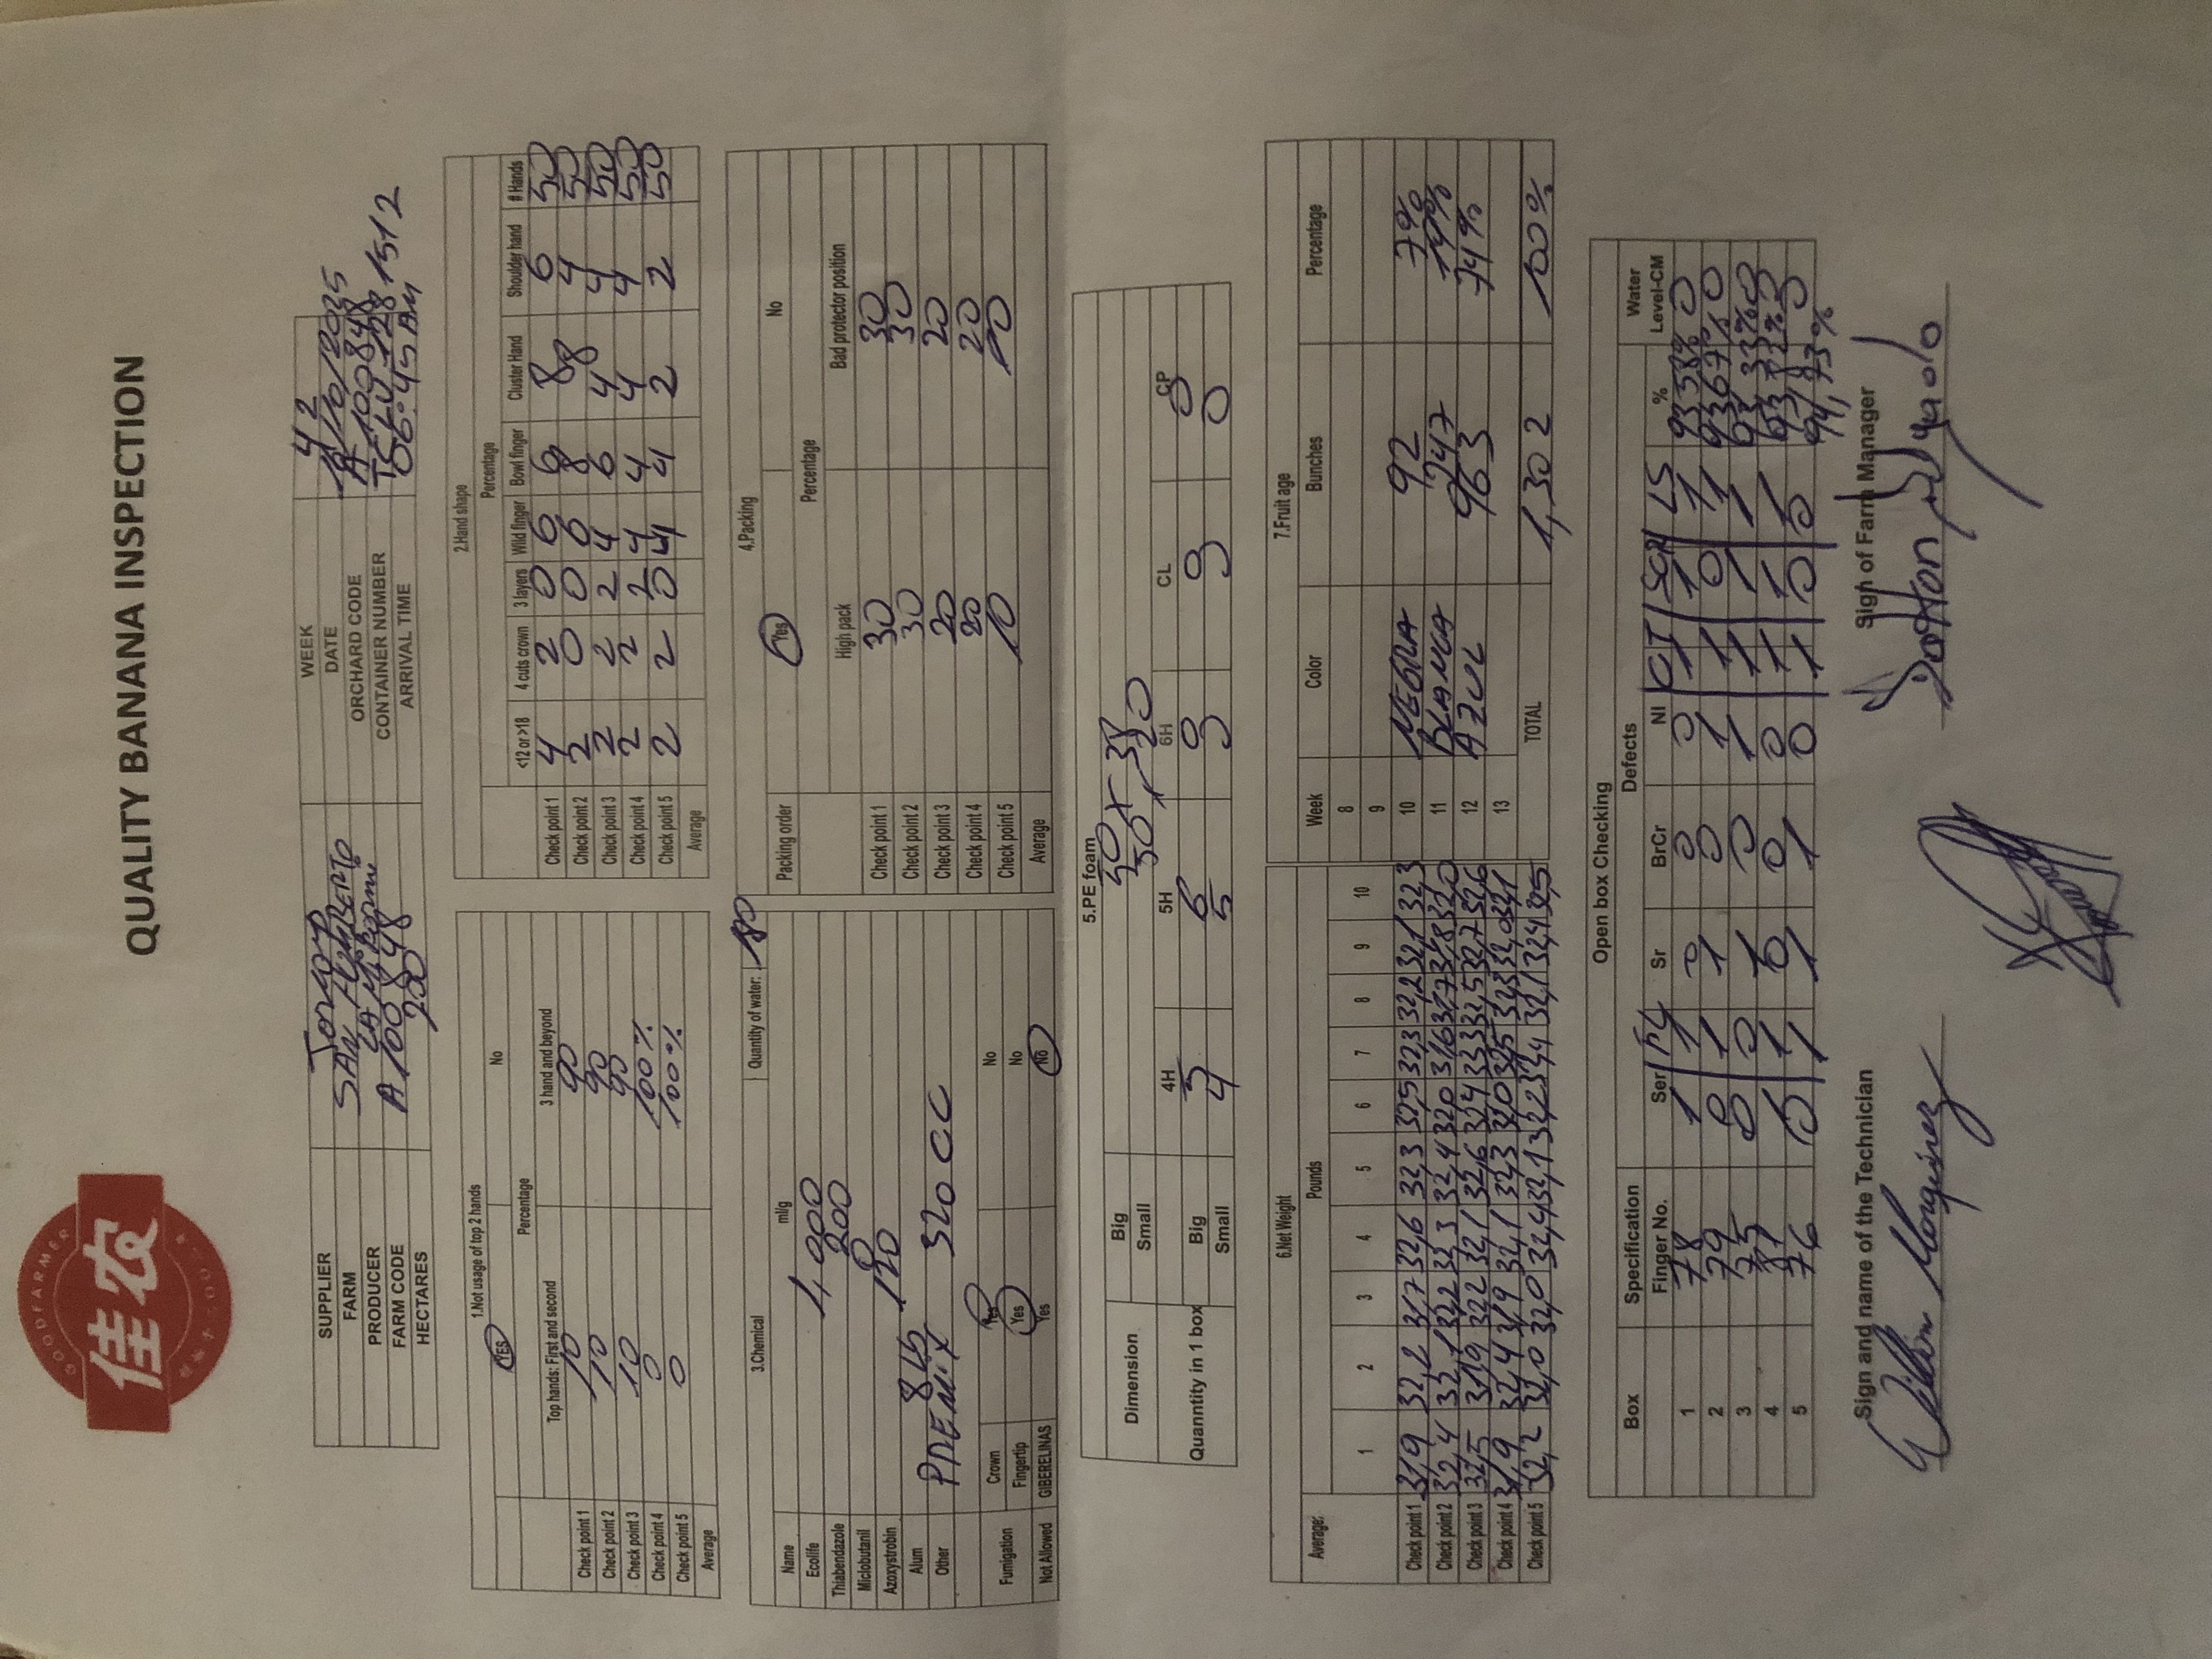 GOODFARMER
佳农
QUALITY BANANA INSPECTION
SUPPLIER Torcorp WEEK 42
FARM SAN HUMBERTO DATE 16/10/2025
PRODUCER LA ORCHARD CODE A100848
FARM CODE A100848 CONTAINER NUMBER TCLU 1281512
HECTARES 200 ARRIVAL TIME 06:45 AM
1.Not usage of top 2 hands
YES No
Percentage
Top hands: First and second 3 hand and beyond
Check point 1 10 90
Check point 2 10 90
Check point 3 10 90
Check point 4 0 100%
Check point 5 0 100%
Average
2.Hand shape
Percentage
<12 or >18 4 cuts crown 3 layers Wild finger Bowl finger Cluster Hand Shoulder hand # Hands
Check point 1 4 2 0 6 6 8 6 50
Check point 2 2 0 0 6 8 8 4 50
Check point 3 2 2 2 4 6 4 4 50
Check point 4 2 2 2 4 4 4 4 50
Check point 5 2 2 0 4 4 2 2 50
Average
3.Chemical Quantity of water: 180
Name ml/g
Ecolife 1,000
Thiabendazole 200
Miclobutanil 0
Azoxystrobin 120
Alum
Other PREMIX 320 CC
Fumigation Crown Yes No
Fingertip Yes No
Not Allowed GIBERELINAS Yes No
4.Packing
Packing order Yes No
Percentage
High pack Bad protector position
Check point 1 30 30
Check point 2 30 30
Check point 3 20 20
Check point 4 20 20
Check point 5 10 10
Average
5.PE foam
Dimension Big 50 x 38
Small 50 x 20
4H 5H 6H CL CP
Quanntity in 1 box Big 5 6 0
Small 4 5 0
6.Net Weight
Average: Pounds
1 2 3 4 5 6 7 8 9 10
Check point 1 31,9 32,2 31,7 32,6 32,3 32,5 32,3 32,2 32,1 32,3
Check point 2 32,4 32,1 32,2 32,3 32,4 32,0 31,6 31,7 31,8 32,0
Check point 3 32,5 31,9 32,2 32,1 32,6 32,4 33,3 32,5 32,7 32,6
Check point 4 31,9 32,4 31,9 32,1 32,3 32,0 32,5 32,3 32,0 32,1
Check point 5 32,2 32,0 32,0 32,4 32,1 32,2 32,4 32,1 32,4 32,5
7.Fruit age
Week Color Bunches Percentage
8
9
10 NEGRA 92 7%
11 BLANCA 247 19%
12 AZUL 963 74%
13
TOTAL 1,302 100%
Open box Checking
Box Specification Defects Water
Finger No. Ser FL Sr BrCr NI CT SCR LS % Level-CM
1 78 1 1 0 0 0 1 1 1 93,58% 0
2 79 0 1 1 0 1 1 0 1 93,67% 0
3 75 0 0 1 0 1 1 1 1 93,33% 0
4 81 1 1 0 0 0 1 1 1 93,82% 0
5 76 0 1 1 1 0 1 0 0 94,73%
Sign and name of the Technician Sign of Farm Manager